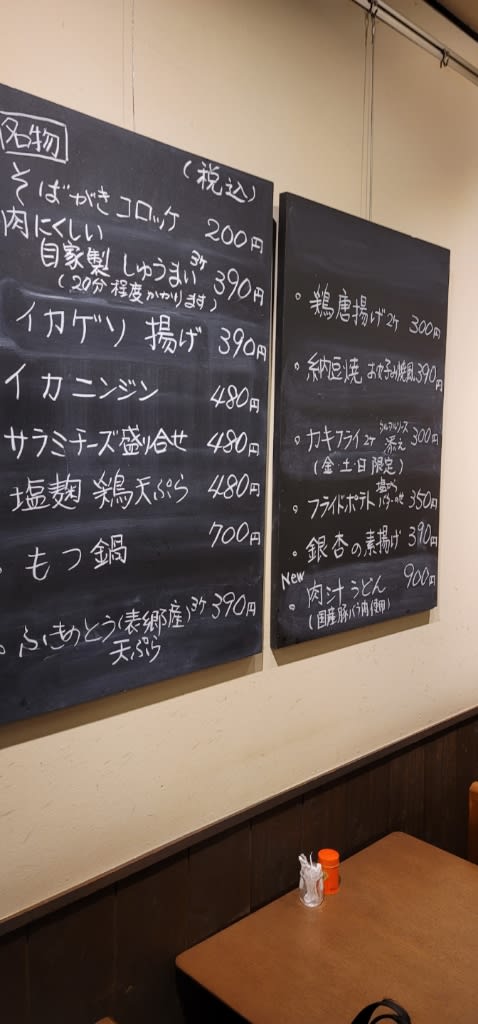 名物
(税込)
そばがきコロッケ 200円
肉にくしい
自家製 しゅうまい 3ケ 390円
(20分程度かかります)
イカゲソ 揚げ 390円
イカニンジン 480円
サラミチーズ盛り合せ 480円
塩麹 鶏天ぷら 480円
もつ鍋 700円
ふきのとう(表郷産)3ケ 390円
天ぷら
鶏唐揚げ2ケ 300円
納豆焼 お好み焼風 390円
カキフライ2ケ 添え 300円
(金土日限定)
フライドポテト 塩から バターのせ 350円
銀杏の素揚げ 390円
New
肉汁うどん 900円
(国産豚バラ肉使用)